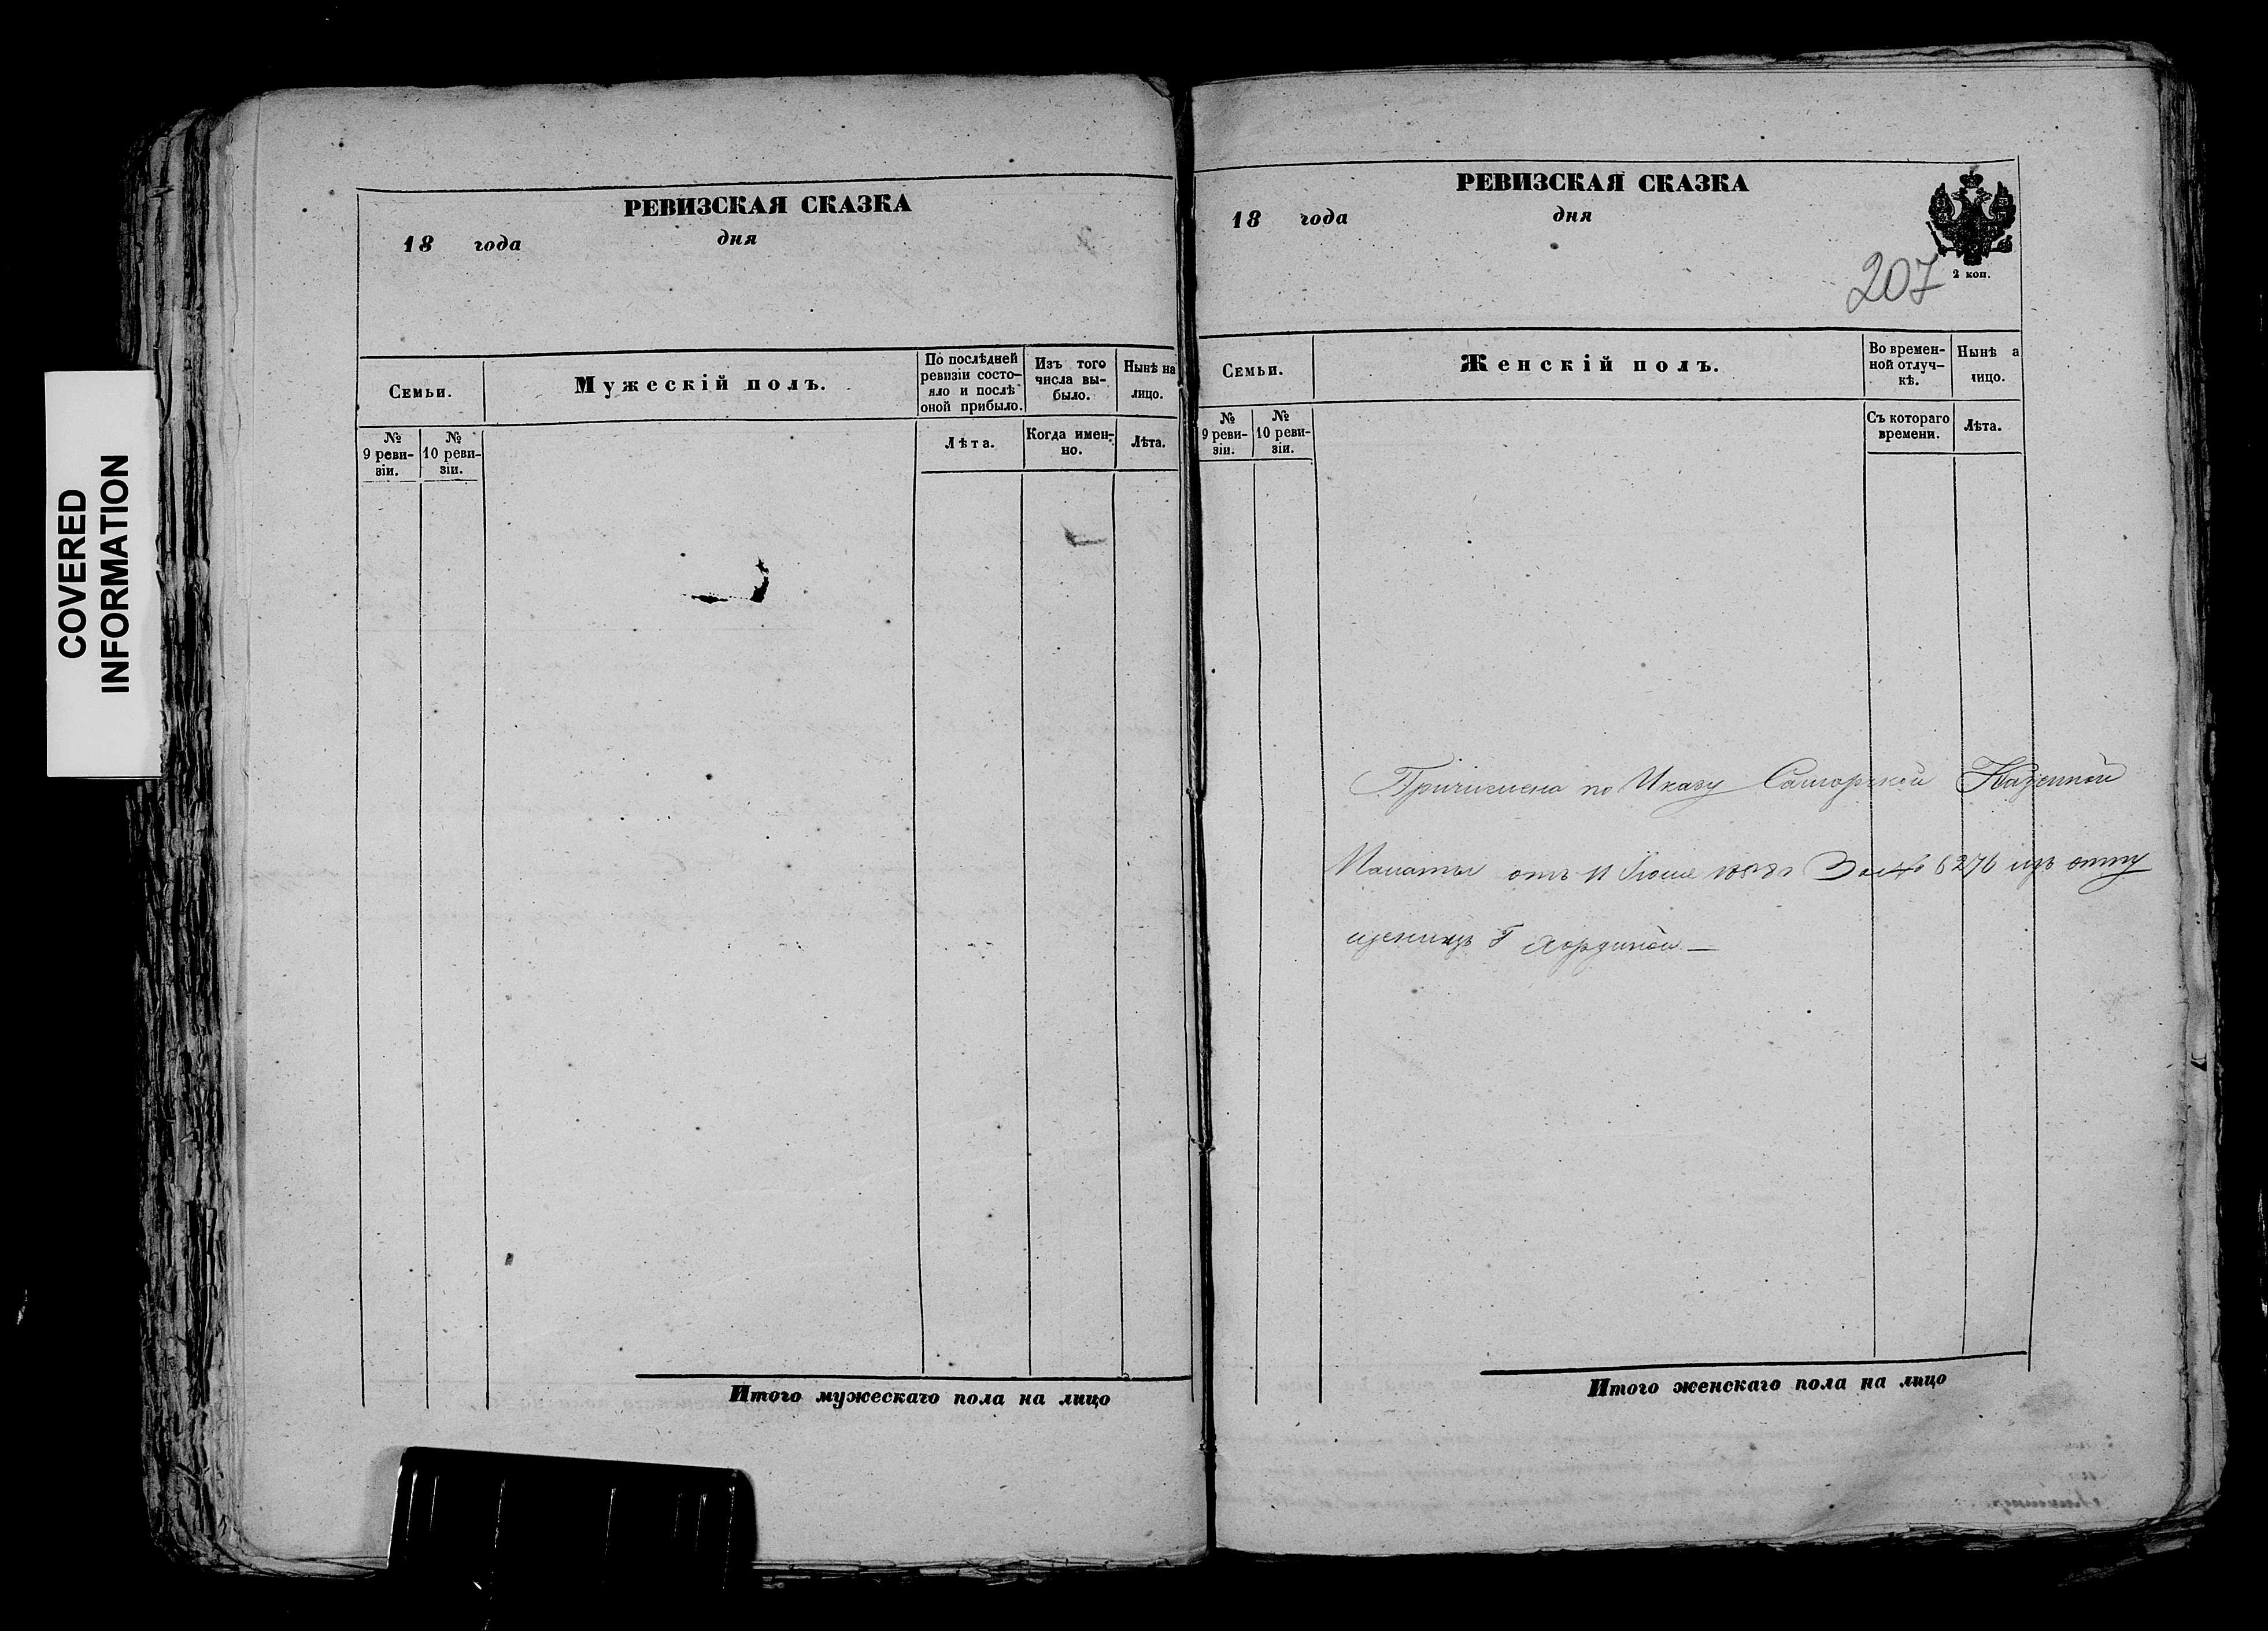 COVERED
INFORMATION
РЕВИЗСКАЯ СКАЗКА
18 года дня
Семьи.
Мужескій полъ.
По послѣдней
ревизіи состо-
яло и послѣ
оной прибыло.
Изъ того
числа вы-
было.
Нынѣ на
лицо.
№
9 реви-
зіи.
№
10 реви-
зіи.
Лѣта.
Когда имен-
но.
Лѣта.
Итого мужескаго пола на лицо
РЕВИЗСКАЯ СКАЗКА
18 года дня
2 коп.
207
Семьи.
Женскій полъ.
Во времен-
ной отлуч-
кѣ.
Нынѣ а
лицо.
№
9 реви-
зіи.
№
10 реви-
зіи.
Съ котораго
времени.
Лѣта.
Причислена по Указу Самарской Казенной
Палаты отъ 11 1858 г За № 6276 изъ отпу
щеницъ Г
Итого женскаго пола на лицо